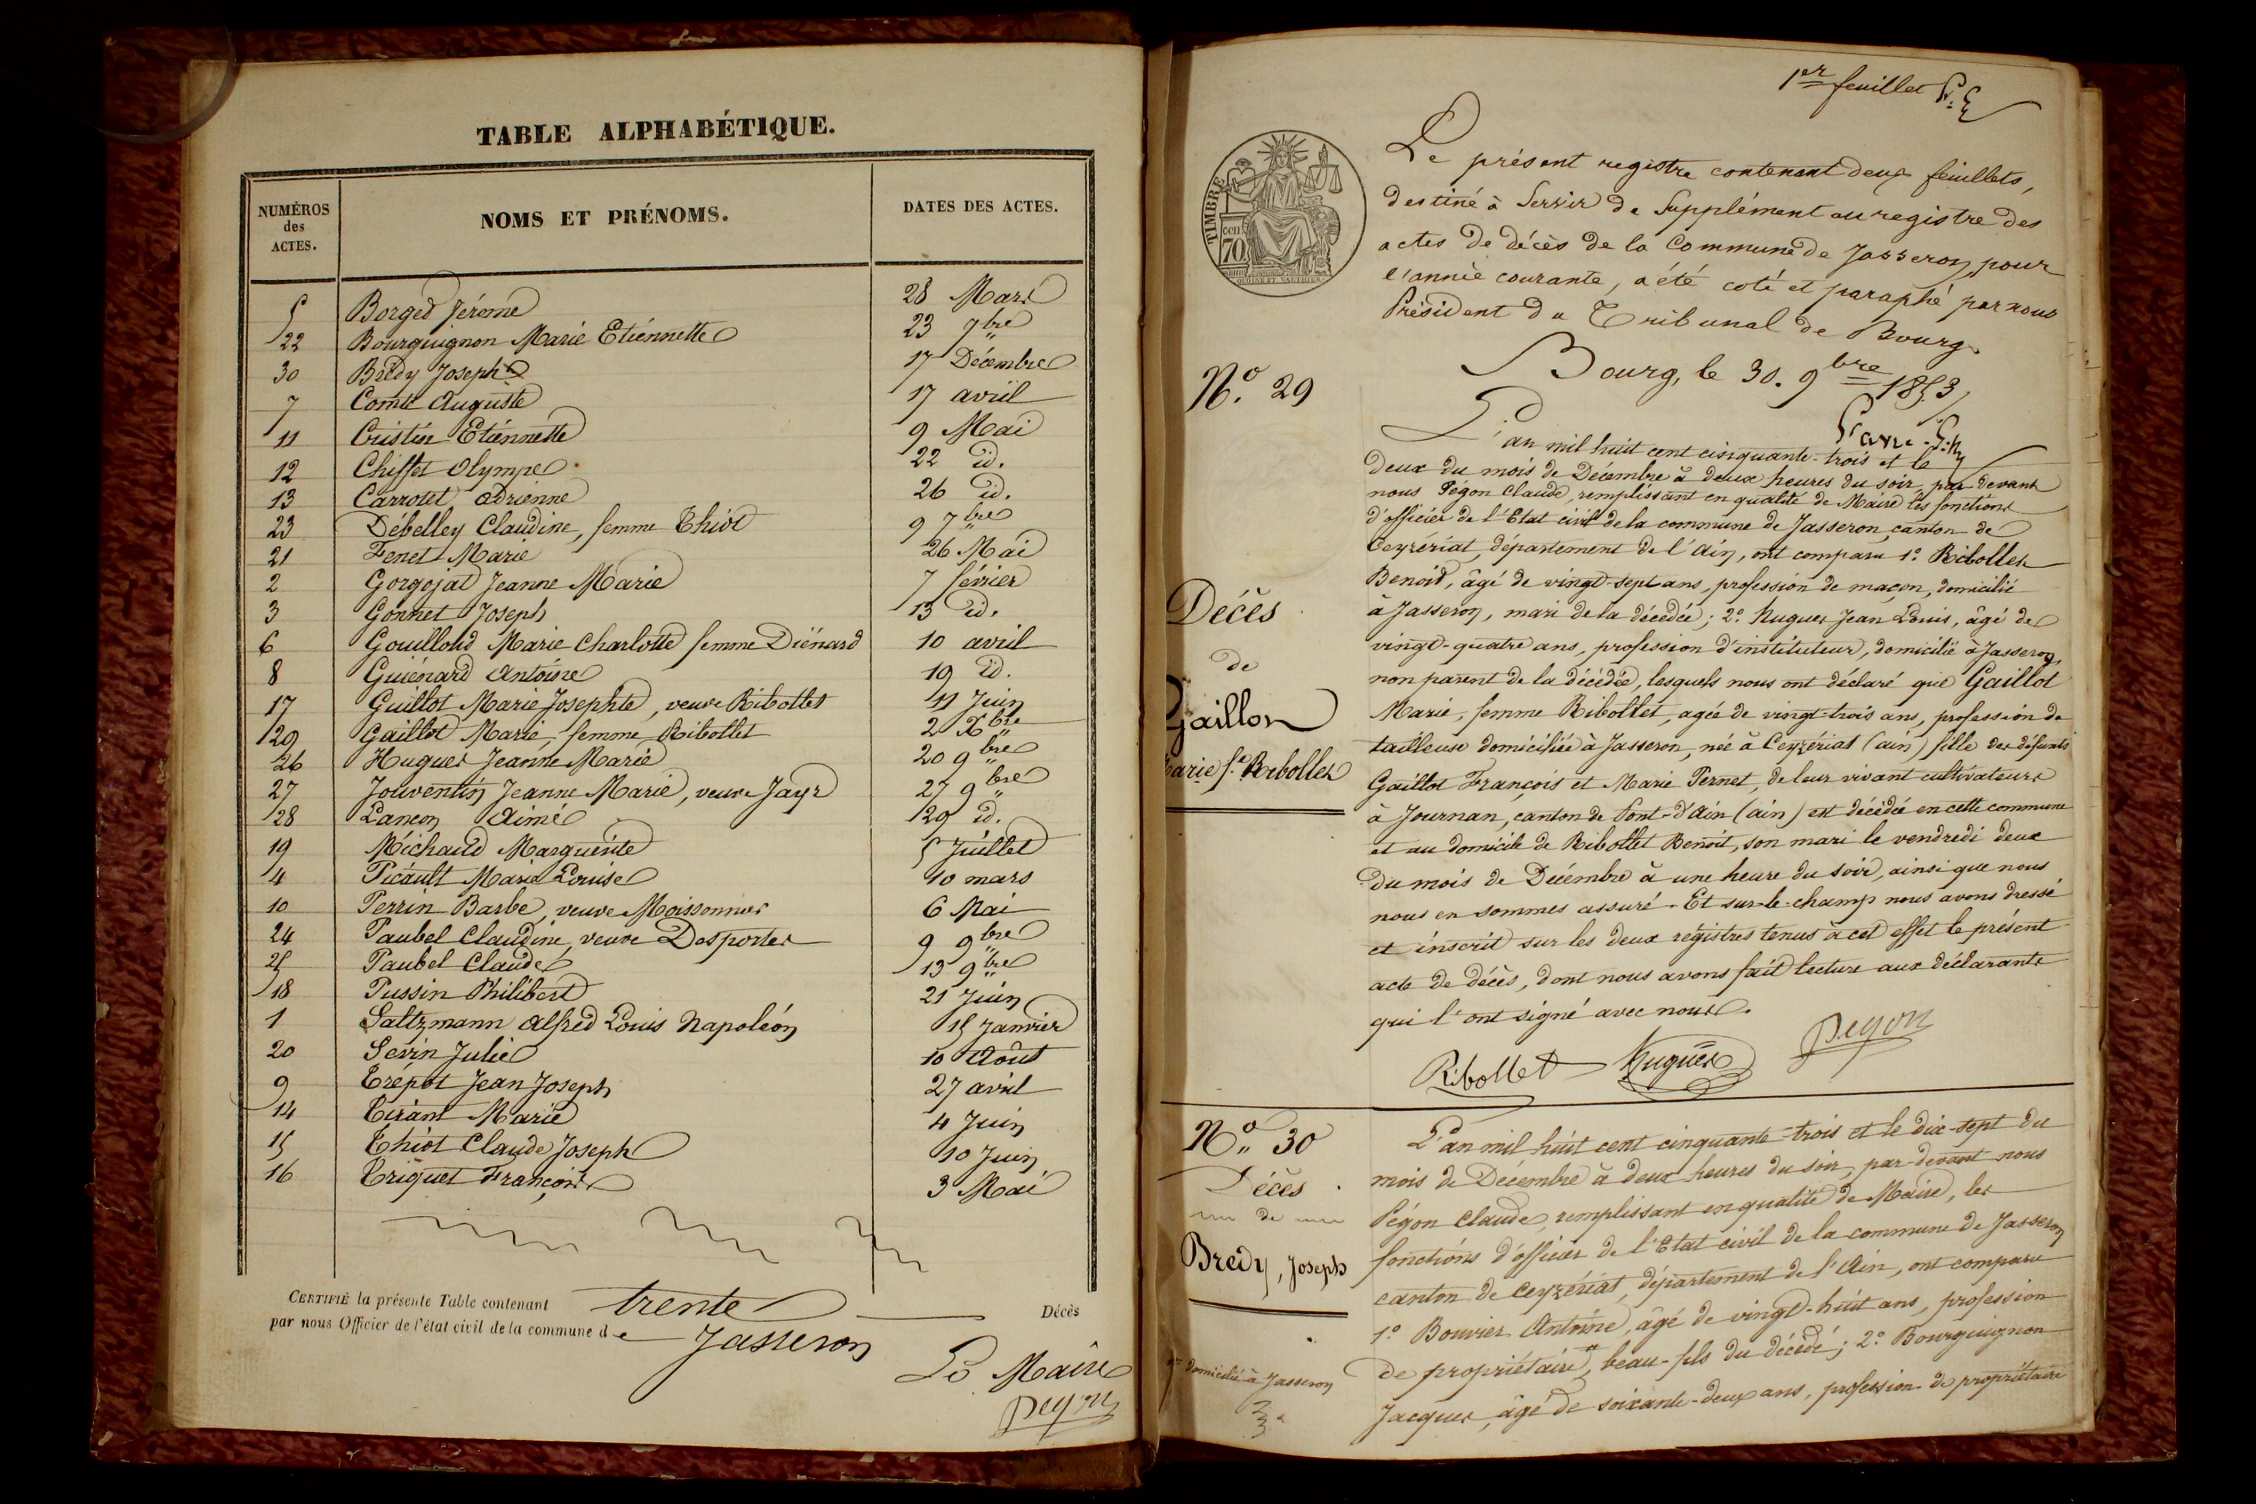 TABLE ALPHABÉTIQUE.
NUMÉROS des ACTES. NOMS ET PRÉNOMS. DATES DES ACTES.
5 Borged Jérome 28 Mars
22 Bourguignon Marie Etiennette 23 7bre
30 Brédy Joseph 17 Décembre
7 Comte Auguste 17 avril
11 Cristin Etiennette 9 Mai
12 Chiffet Olympe 22 id.
13 Carrotet Adrienne 26 id.
23 Débelley Claudine, femme Thiot 9 7bre
21 Fenet Marie 26 Mai
2 Gorgojat Jeanne Marie 7 février
3 Gonnet Joseph 13 id.
6 Gouilloud Marie Charlotte femme Diénard 10 avril
8 Guiénard Antoine 19 id.
17 Guillot Marie Josephte, veuve Ribollet 11 Juin
29 Gaillot Marie femme Ribollet 2 Xbre
26 Hugues Jeanne Marie 20 9bre
27 Jouventin Jeanne Marie, veuve Jayr 27 9bre
28 Lançon Aimé 29 id.
19 Michaud Marguerite 5 Juillet
4 Picault Maria Louise 10 mars
10 Perrin Barbe, veuve Moissonnier 6 Mai
24 Paubel Claudine, veuve Desportes 9 9bre
25 Paubel Claude 13 9bre
18 Pussin Philibert 21 Juin
1 Saltzmann Alfred Louis Napoléon 15 Janvier
20 Sevin Julie 10 Août
9 Trépot Jean Joseph 27 avril
14 Tirant Marie 4 Juin
15 Thiot Claude Joseph 10 Juin
16 Triquet François 3 Mai
CERTIFIÉ la présente Table contenant trente Décès
par nous Officier de l'état civil de la commune de Jasseron
Le Maire
Pegon
1er feuillet
TIMBRE
cent
70
Le présent registre contenant deux feuillets,
destiné à Servir de Supplément au registre des
actes de décès de la Commune de Jasseron, pour
l'année courante, a été coté et paraphé par nous
Président du Tribunal de Bourg.
Bourg, le 30. 9bre 1853
N.o 29
Décès
de
Gaillon
Marie fe Ribollet
L'an mil huit cent cinquante-trois et le
deux du mois de Décembre à deux heures du soir, par-devant
nous Pégon Claude, remplissant en qualité de Maire les fonctions
d'officier de l'Etat civil de la commune de Jasseron, canton de
Ceyzériat, département de l'Ain, ont comparu 1o Ribollet
Benoit, âgé de vingt-sept ans, profession de maçon, domicilié
à Jasseron, mari de la décédée; 2o Hugues Jean Louis, âgé de
vingt-quatre ans, profession d'instituteur, domicilié à Jasseron,
non parent de la décédée, lesquels nous ont déclaré que Gaillot
Marie, femme Ribollet, agée de vingt-trois ans, profession de
tailleuse domiciliée à Jasseron, née à Ceyzériat (ain) fille des défunts
Gaillot François et Marie Pernet, de leur vivant cultivateurs
à Journan, canton de Pont-d'Ain (ain) est décédée en cette commune
et au domicile de Ribollet Benoit, son mari le vendredi deux
du mois de Décembre à une heure du soir, ainsi que nous
nous en sommes assuré. Et sur-le-champ nous avons dressé
et inscrit sur les deux registres tenus à cet effet le présent
acte de décès, dont nous avons fait lecture aux déclarants
qui l'ont signé avec nous.
Ribollet Hugues Pegon
N.o 30
Décès
de
Brédy, Joseph
L'an mil huit cent cinquante-trois et le dix-sept du
mois de Décembre à deux heures du soir, par-devant nous
Pégon Claude, remplissant en qualité de Maire, les
fonctions d'officier de l'Etat civil de la commune de Jasseron
canton de Ceyzériat, département de l'Ain, ont comparu
1o Bouvier Antoine, âgé de vingt-huit ans, profession
de propriétaire, beau-fils du décédé; 2o Bourguignon
Jacques, âgé de soixante-deux ans, profession de propriétaire
domicilié à Jasseron